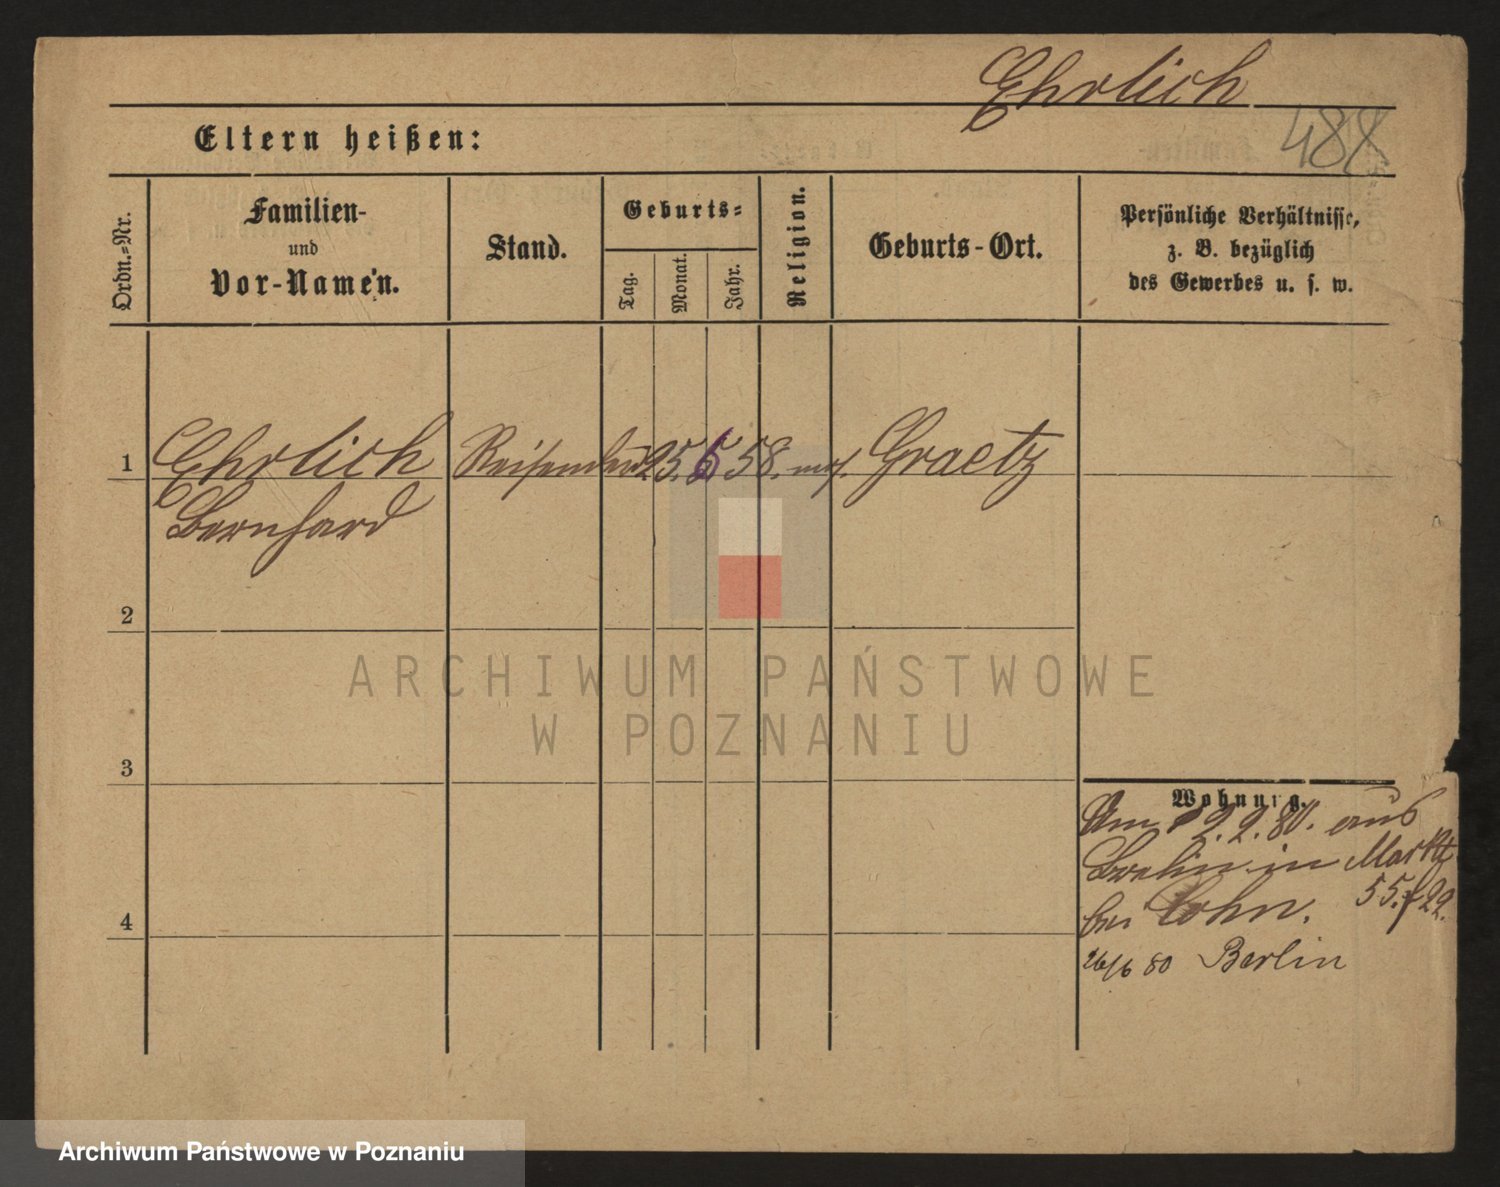 Ehrlich
488
Eltern heißen:
Ordn.=Nr.
Familien-
und
Vor-Namen.
Stand.
Geburts=
Tag.
Monat.
Jahr.
Religion.
Geburts-Ort.
Persönliche Verhältnisse,
z. B. bezüglich
des Gewerbes u. s. w.
1
Ehrlich
Bernhard
Reisender
25.
58.
mos.
Graetz
2
3
4
Wohnung.
Am 12.2.80. aus
Berlin in Markt
55.
bei Cohn.
26/6 80 Berlin
ARCHIWUM PAŃSTWOWE
W POZNANIU
Archiwum Państwowe w Poznaniu